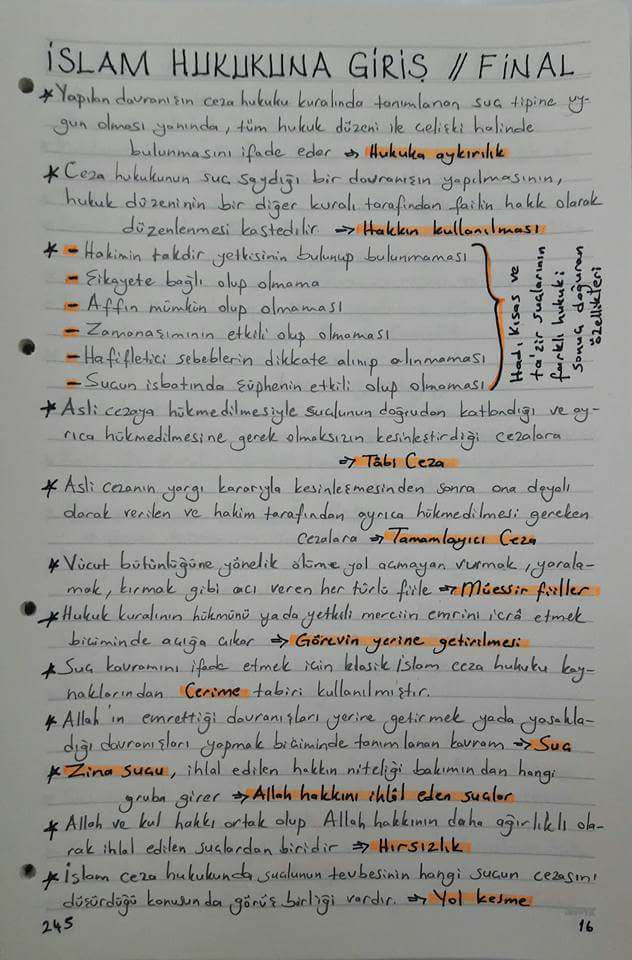 İSLAM HUKUKUNA GİRİŞ // FİNAL
* Yapılan davranışın ceza hukuku kuralında tanımlanan suç tipine uy-
gun olması yanında, tüm hukuk düzeni ile çelişki halinde
bulunmasını ifade eder ⇒ Hukuka aykırılık
* Ceza hukukunun suç saydığı bir davranışın yapılmasının,
hukuk düzeninin bir diğer kuralı tarafından failin hakk olarak
düzenlenmesi kastedilir. ⇒ Hakkın kullanılması
* - Hakimin takdir yetkisinin bulunup bulunmaması
- Şikayete bağlı olup olmama
- Affın mümkün olup olmaması
- Zamanaşımının etkili olup olmaması
- Hafifletici sebeblerin dikkate alınıp alınmaması
- Suçun isbatında şüphenin etkili olup olmaması
Had, kısas ve
ta'zir suçlarının
farklı hukuki
sonuç doğuran
özellikleri
* Asli cezaya hükmedilmesiyle suçlunun doğrudan katlandığı ve ay-
rıca hükmedilmesine gerek olmaksızın kesinleştirdiği cezalara
⇒ Tâbi Ceza
* Asli cezanın yargı kararıyla kesinleşmesinden sonra ona dayalı
olarak verilen ve hakim tarafından ayrıca hükmedilmesi gereken
cezalara ⇒ Tamamlayıcı Ceza
* Vücut bütünlüğüne yönelik ölüme yol açmayan vurmak, yarala-
mak, kırmak gibi acı veren her türlü fiile ⇒ Müessir fiiller
* Hukuk kuralının hükmünü yada yetkili merciin emrini icrâ etmek
biçiminde açığa çıkar ⇒ Görevin yerine getirilmesi
* Suç kavramını ifade etmek için klasik İslam ceza hukuku kay-
naklarından Cerime tabiri kullanılmıştır.
* Allah'ın emrettiği davranışları yerine getirmek yada yasakla-
dığı davranışları yapmak biçiminde tanımlanan kavram ⇒ Suç
* Zina suçu, ihlal edilen hakkın niteliği bakımından hangi
gruba girer ⇒ Allah hakkını ihlâl eden suçlar
* Allah ve kul hakkı ortak olup Allah hakkının daha ağırlıklı ola-
rak ihlal edilen suçlardan biridir ⇒ Hırsızlık
* İslam ceza hukukunda suçlunun tevbesinin hangi suçun cezasını
düşürdüğü konusunda görüş birliği vardır. ⇒ Yol kesme
245
16